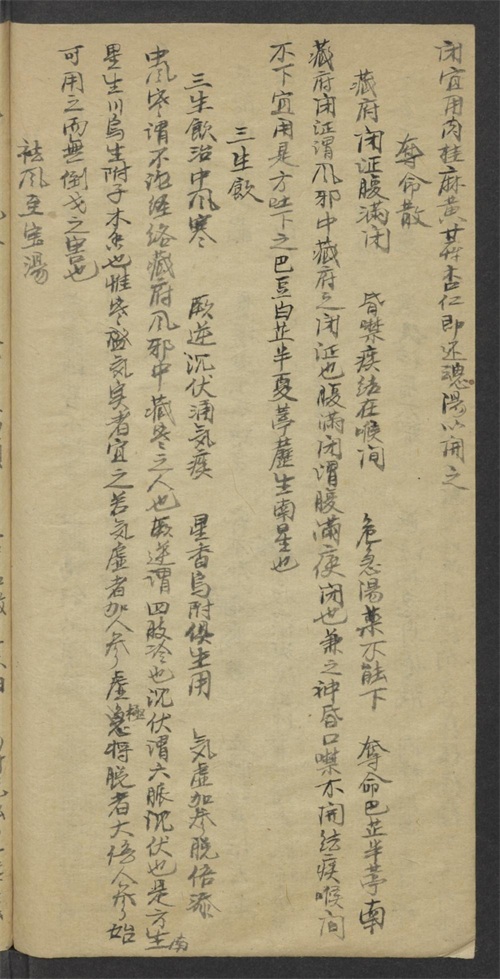 闭宜用肉桂麻黄甘草杏仁即还魂湯以開之
奪命散
藏府闭证腹滿闭 昏噤痰结在喉间 危急湯藥不能下 奪命巴芷半葶南
藏府闭证謂風邪中藏府之闭证也腹滿闭謂腹滿便闭也兼之神昏口噤不開结痰喉间
不下宜用是方吐下之巴豆白芷半夏葶藶生南星也
三生飲
三生飲治中風寒 厥逆沉伏涌气痰 星香烏附俱生用 気虚加參脱倍添
中風寒謂不論經络藏府風邪中藏寒之人也厥逆謂四肢冷也沉伏謂六脈沉伏也是方生南
星生川烏生附子木香也惟寒盛気实者宜之若気虚者加人参虚極將脱者大倍人參始
可用之而無倒戈之害也
祛風至宝湯